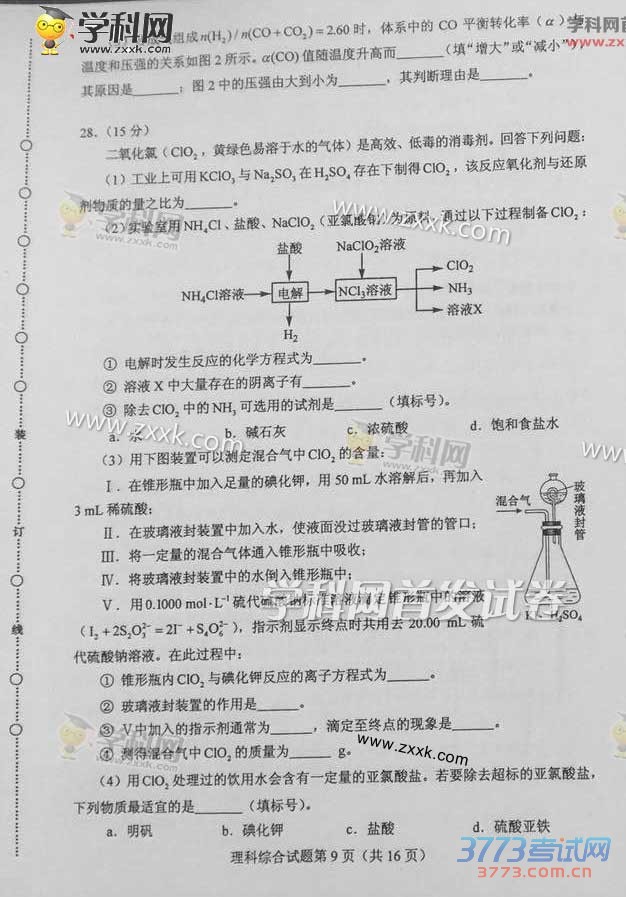 学科网
www.zxxk.com
学科网
www.zxxk.
组成n(H₂)/n(CO+CO₂)=2.60时，体系中的CO平衡转化率（α）与
温度和压强的关系如图2所示。α(CO)值随温度升高而______（填“增大”或“减小”），
其原因是______；图2中的压强由大到小为______，其判断理由是______。
28.（15分）
二氧化氯（ClO₂，黄绿色易溶于水的气体）是高效、低毒的消毒剂。回答下列问题：
（1）工业上可用KClO₃与Na₂SO₃在H₂SO₄存在下制得ClO₂，该反应氧化剂与还原
剂物质的量之比为______。
（2）实验室用NH₄Cl、盐酸、NaClO₂（亚氯酸钠）为原料，通过以下过程制备ClO₂：
盐酸 NaClO₂溶液
NH₄Cl溶液 电解 NCl₃溶液 ClO₂
NH₃
溶液X
H₂
① 电解时发生反应的化学方程式为______。
② 溶液X中大量存在的阴离子有______。
③ 除去ClO₂中的NH₃可选用的试剂是______（填标号）。
a. 水 b. 碱石灰 c. 浓硫酸 d. 饱和食盐水
（3）用下图装置可以测定混合气中ClO₂的含量：
Ⅰ. 在锥形瓶中加入足量的碘化钾，用50 mL水溶解后，再加入
3 mL稀硫酸：
Ⅱ. 在玻璃液封装置中加入水，使液面没过玻璃液封管的管口；
Ⅲ. 将一定量的混合气体通入锥形瓶中吸收；
Ⅳ. 将玻璃液封装置中的水倒入锥形瓶中；
Ⅴ. 用0.1000 mol·L⁻¹硫代硫酸钠标准溶液滴定锥形瓶中的溶液
（I₂+2S₂O₃²⁻=2I⁻+S₄O₆²⁻），指示剂显示终点时共用去20.00 mL硫
代硫酸钠溶液。在此过程中：
混合气
玻璃液封管
H₂SO₄
① 锥形瓶内ClO₂与碘化钾反应的离子方程式为______。
② 玻璃液封装置的作用是______。
③ Ⅴ中加入的指示剂通常为______，滴定至终点的现象是______。
④ 测得混合气中ClO₂的质量为______ g。
（4）用ClO₂处理过的饮用水会含有一定量的亚氯酸盐。若要除去超标的亚氯酸盐，
下列物质最适宜的是______（填标号）。
a. 明矾 b. 碘化钾 c. 盐酸 d. 硫酸亚铁
理科综合试题第9页（共16页）
装
订
线
学科网
www.zxxk.com
www.zxxk.com
学科网
www.zxxk.
学科网首发试卷
学科网
www.zxxk.com
3773考试网
3773.com.cn